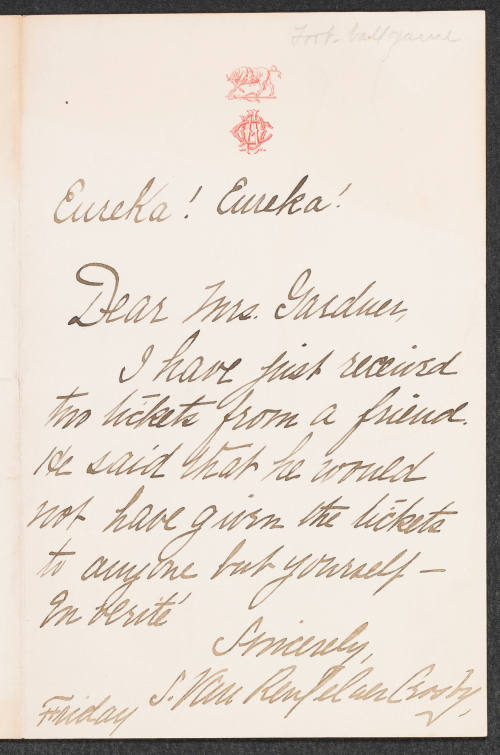 Foot-ball game
Eureka! Eureka!
Dear Mrs. Gardner,
I have just received
two tickets from a friend.
He said that he would
not have given the tickets
to anyone but yourself —
En vérité
Sincerely,
S. Van Rensselaer Crosby,
Friday